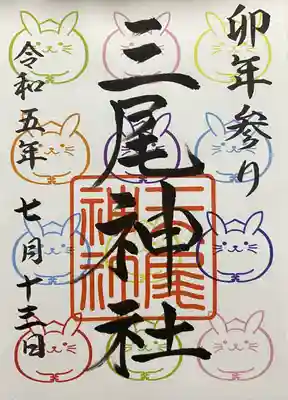 卯年参り
三尾神社
三尾神社
令和五年 七月十三日